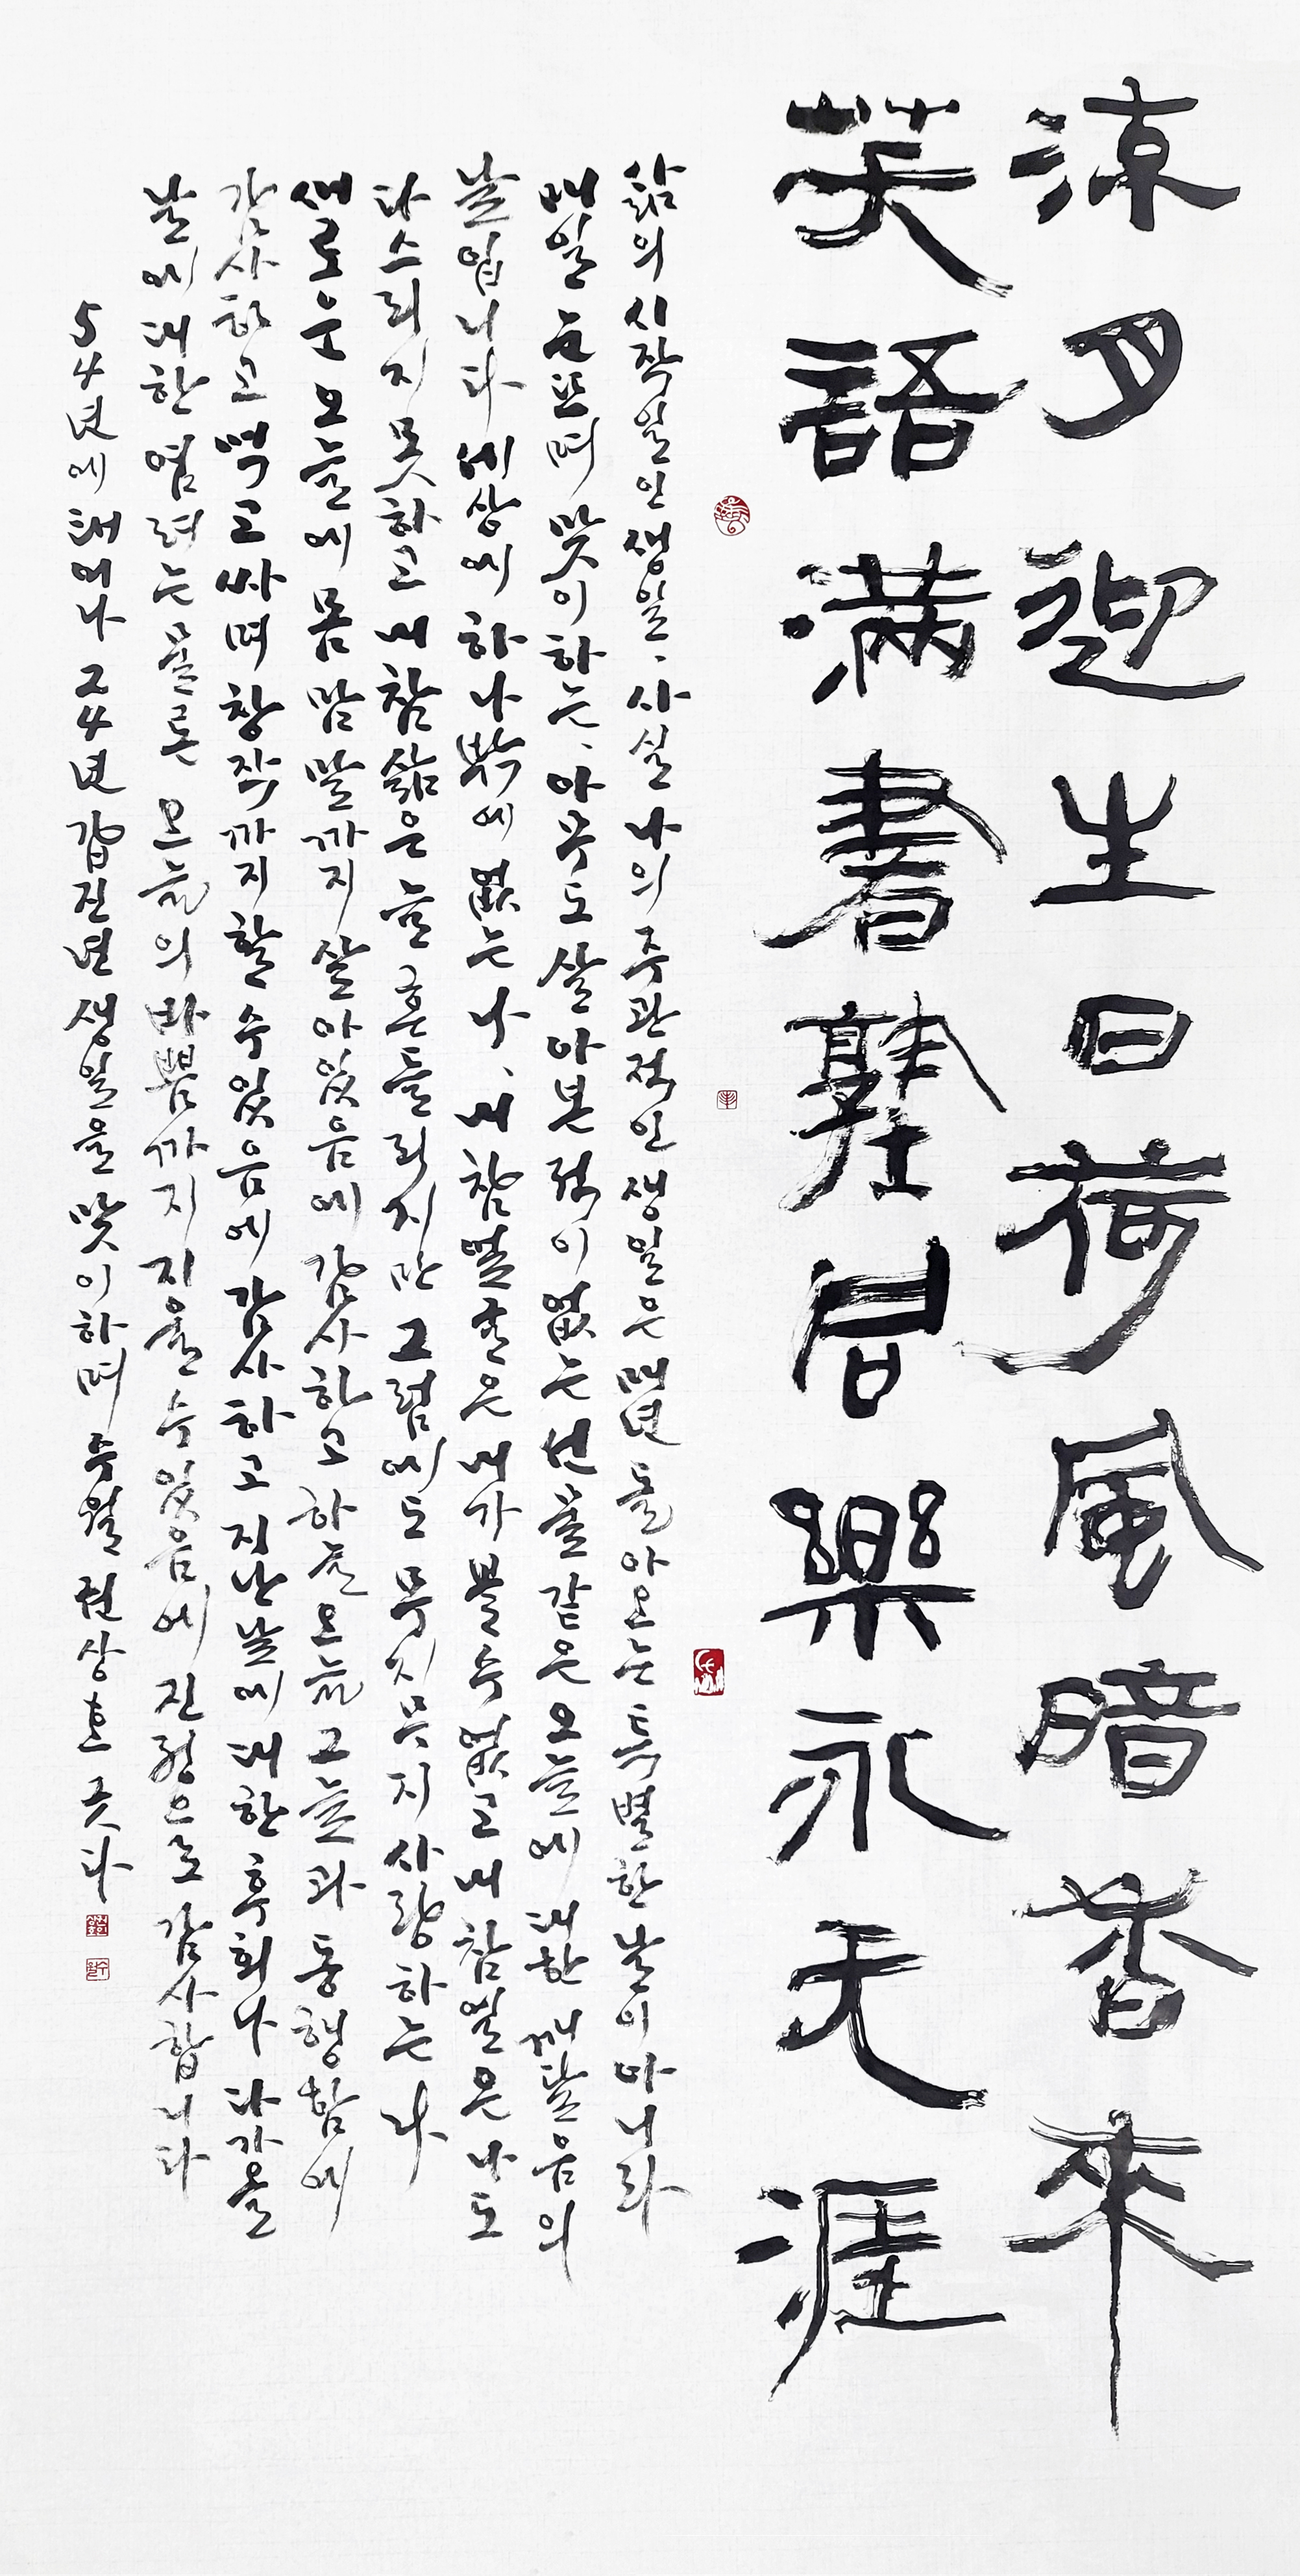 涼月迎生日荷風暗香來
笑語滿書塾同樂永天涯
삶의 시작일인 생일, 사실 나의 주관적인 생일은 매년 돌아오는 특별한 날이 아니라
매일 눈뜨며 맞이하는, 아무도 살아본 적이 없는 선물 같은 오늘에 대한 깨달음의
날입니다 세상에 하나밖에 없는 나, 내 참 얼굴은 내가 볼 수 없고 내 참 얼은 나도
다스리지 못하고 내 참 삶은 늘 흔들리지만 그럼에도 무지무지 사랑하는 나
새로운 오늘에 몸 맘 말까지 살아있음에 감사하고 하늘 오늘 그늘과 동행함에
감사하고 먹고 싸며 창작까지 할 수 있음에 감사하고 지난날에 대한 후회나 다가올
날에 대한 염려는 물론 오늘의 바쁨까지 지울 수 있음에 진정으로 감사합니다
54년에 태어나 24년 갑진년 생일을 맞이하며 수월 권상호 긋다